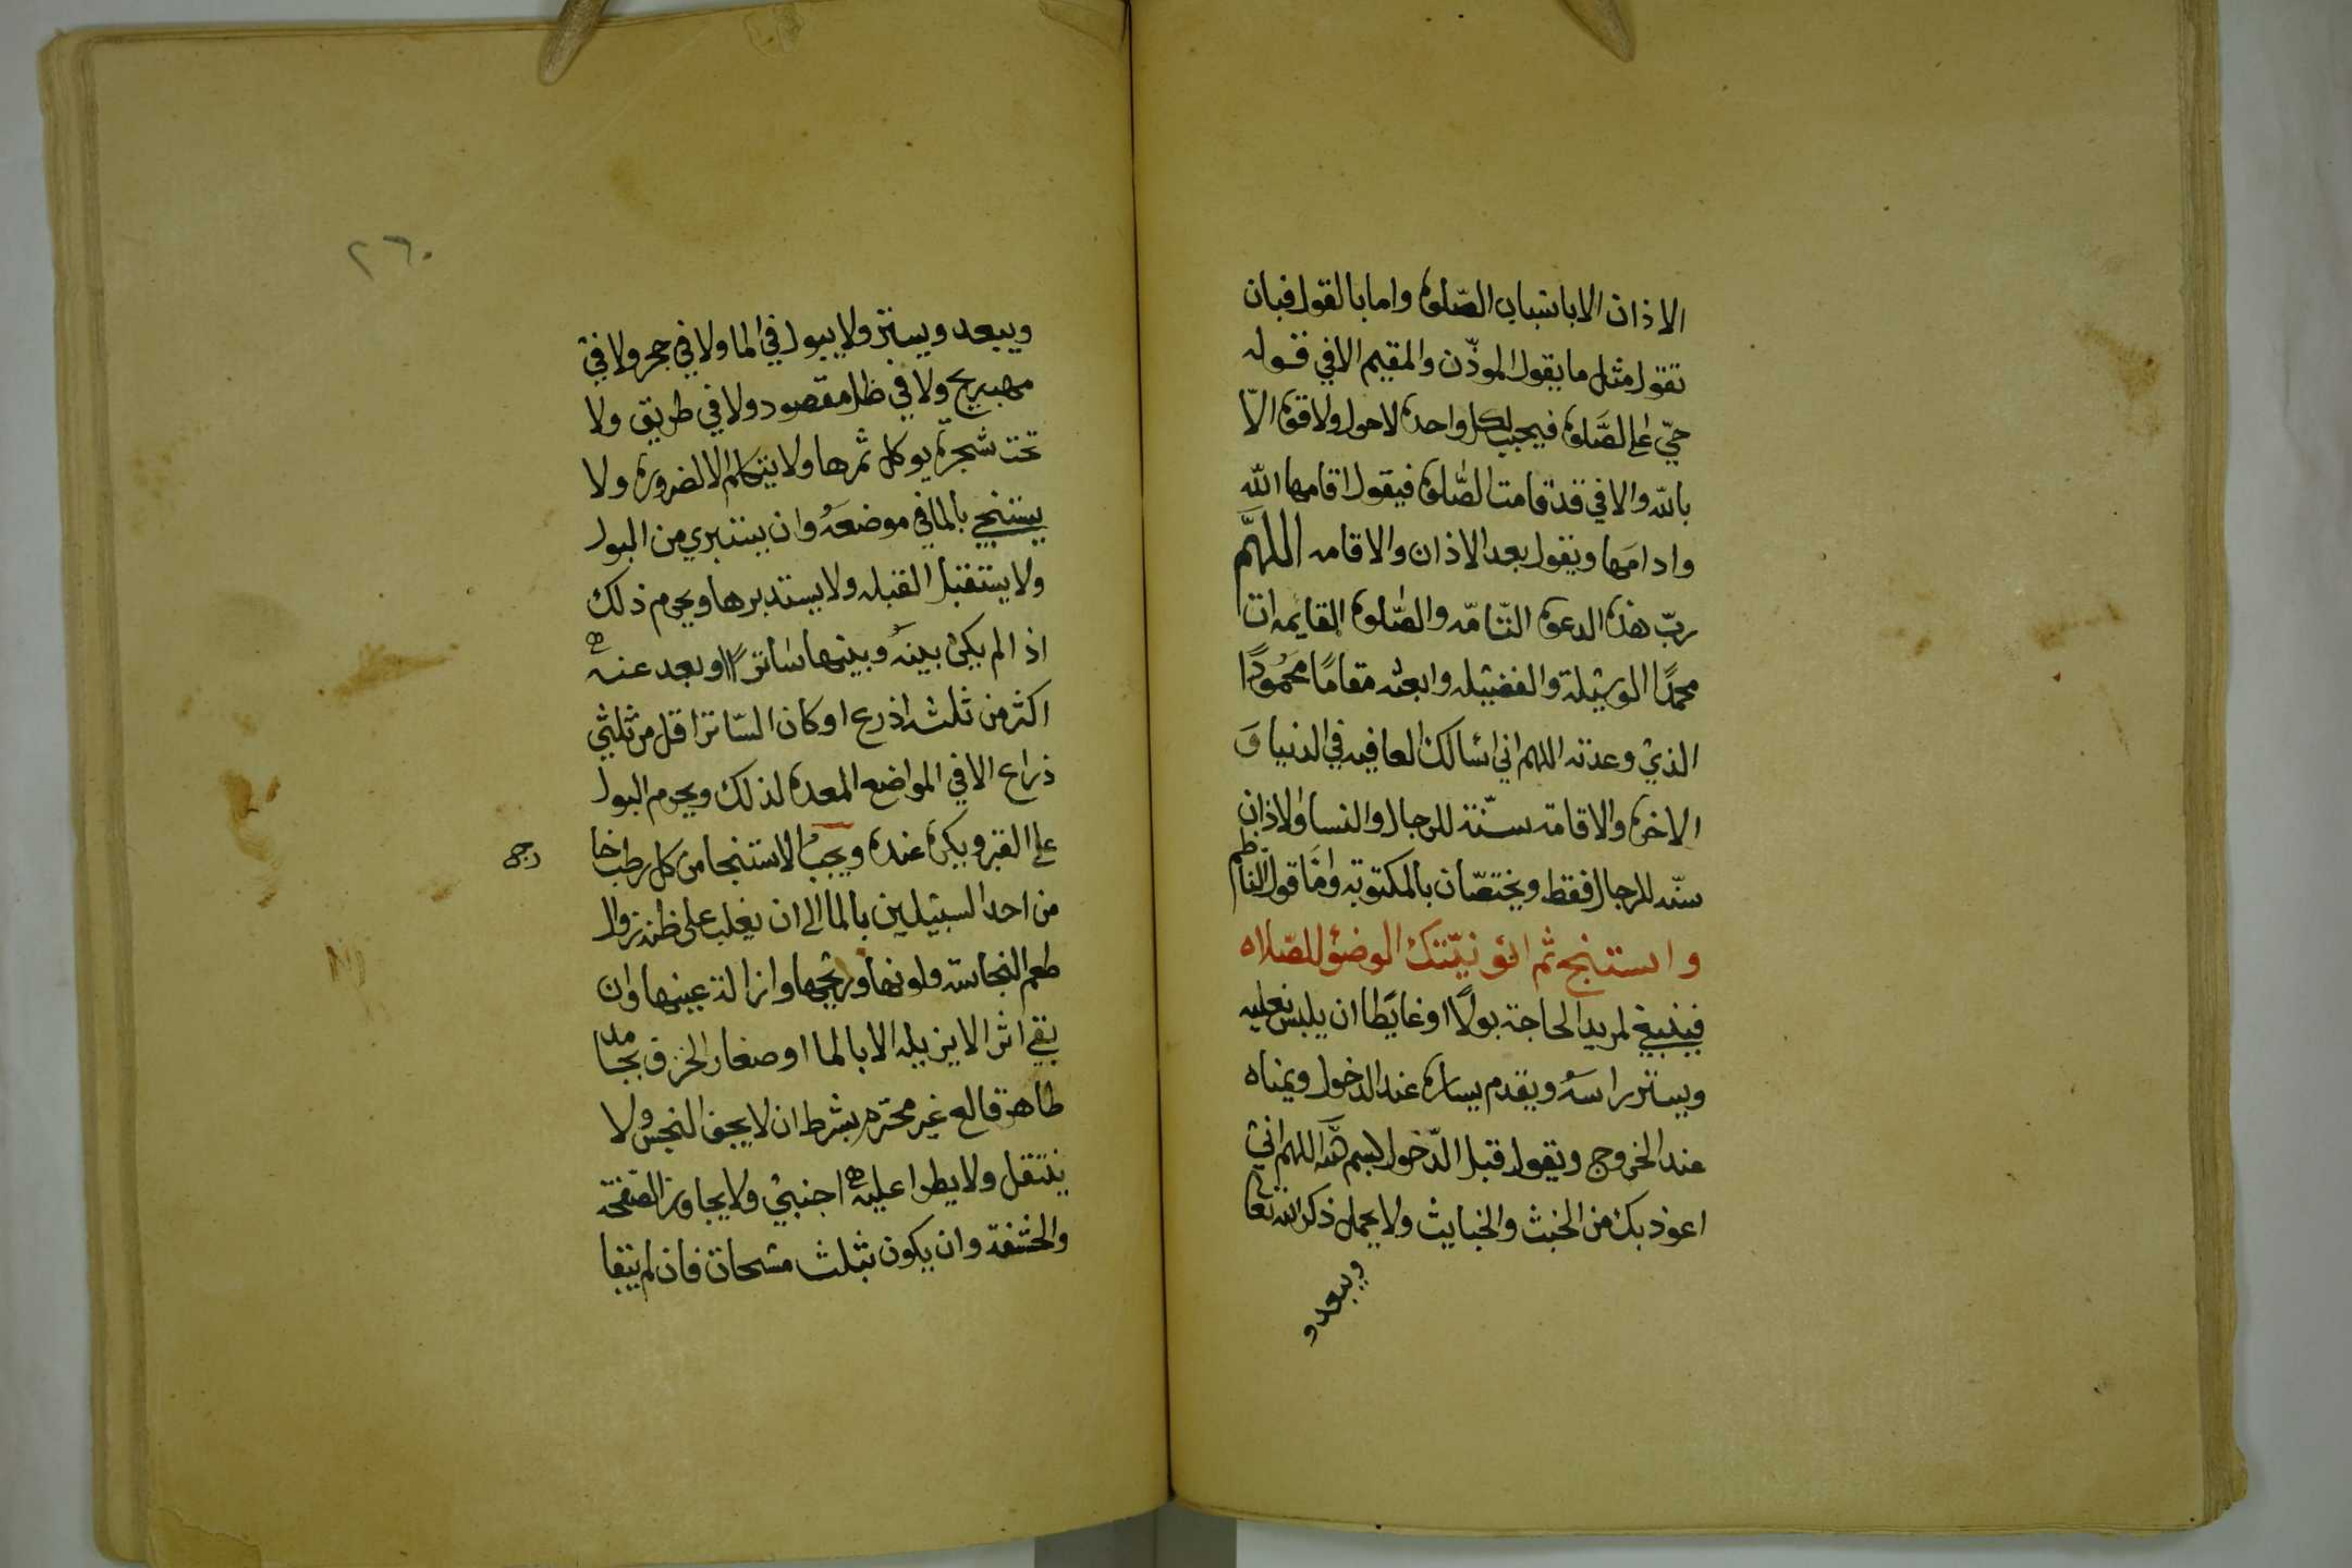 الاذان الا باسباب الصّلوة واما بالقول فبان
تقول مثل ما يقول الموذّن والمقيم الا في قوله
حيّ على الصَّلوة فيجيب لكل واحدة لاحول ولاقوة الّا
بالله والا في قد قامت الصَّلوة فيقول اقامها الله
وادامَها ويقول بعد الاذان والاقامه اللهَّم
ربّ هذه الدعوة التّامّه والصَّلوة القايمه ات
محمدًا الوسيلة والفضيله وابعثه مقامًا محمُودًا
الذي وعدته اللهم اني اسالك العافيه في الدنيا وَ
الاخرة والاقامة سنّة للرجال والنسا والاذان
سنّه للرجال فقط ويختصّان بالمكتوبة وامّا قول النّاظم
واستنج ثم انو نيّتك الوضؤ للصّلاه
فينبغي لمريد الحاجة بولًا او غايَطا ان يلبس نعليه
ويستر راسَهُ ويقدم يساره عند الدخول ويمناه
عند الخروج ويقول قبل الدّخول بسم الله اللهم اني
اعوذ بك من الخبث والخبايث ولا يحمل ذكر الله تعا
ويبعد و
٢٦٠
ويبعد ويستتر ولا يبول في الما ولا في جحر ولا في
مهب ريح ولا في ظل مقصود ولا في طريق ولا
تحت شجرة يوكل ثمرها ولا يتكلم الا لضرورة ولا
يستنجي بالما في موضعَهُ وان يستبري من البول
ولا يستقبل القبله ولا يستدبرها ويحرم ذلك
اذا لم يكن بينهُ وبينها ساترًا او بعد عنه
اكثر من ثلثه اذرع او كان السّاتر اقل من ثلثي
ذراع الا في المواضع المعدة لذلك ويحرم البول
على القبر ويكره عنده ويجبُ الاستنجا من كل رطب خا
رج
من احد السبيلين بالما الى ان يغلب على ظنه زوال
طعم النجاسه ولونها وريحها وازالة عينها وان
بقي اثر لا يزيله الا بالما او صغار الخزف بجامد
طاهر قالع غير محترم بشرط ان لا يجف النجس ولا
ينتقل ولا يطرا عليه اجنبي ولا يجاوز الصفحه
والحشفة وان يكون بثلث مسحات فان لم ينقا